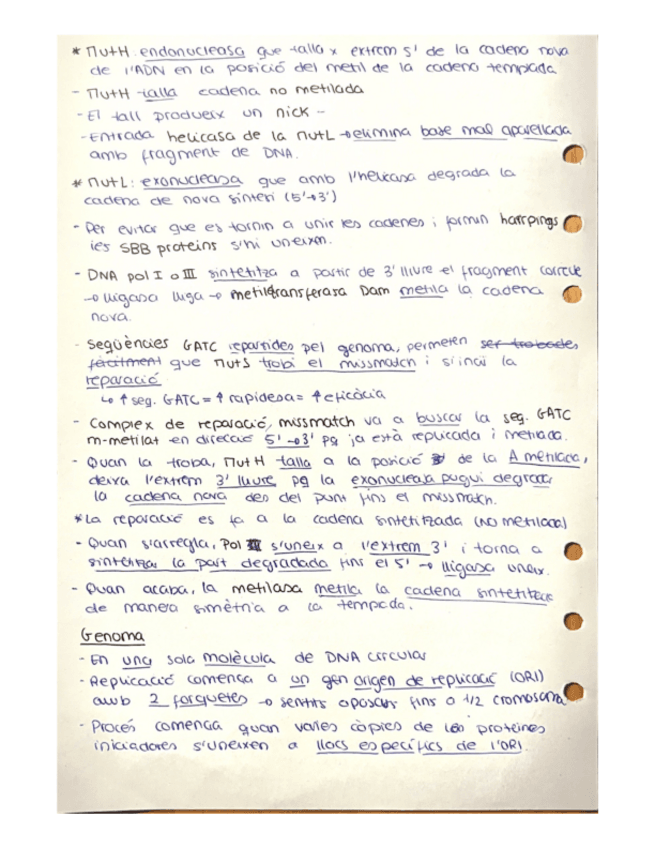 * MutH: endonucleasa que talla x extrem 5' de la cadena nova
de l'ADN en la posició del metil de la cadena templada
- MutH talla cadena no metilada
- El tall produeix un nick -
- Entrada helicasa de la MutL → elimina base mal aparellada
amb fragment de DNA.
* MutL: exonucleasa que amb l'helicasa degrada la
cadena de nova síntesi (5'→3')
- Per evitar que es tornin a unir les cadenes i formin harrpings
les SBB proteins s'hi uneixen.
- DNA pol I o III sintetitza a partir de 3' lliure el fragment correcte
→ lligasa lliga → metiltransferasa Dam metila la cadena
nova.
- Seqüències GATC repartides pel genoma, permeten ser trobades
fàcilment que MutS trobi el missmatch i s'inciï la
reparació
↳ ↑ seg. GATC = ↑ rapidesa = ↑ eficàcia
- Complex de reparació, missmatch va a buscar la seq. GATC
m-metilat en direcció 5'→3' pq ja està replicada i metilada.
- Quan la troba, MutH talla a la posició de la A metilada,
deixa l'extrem 3' lliure pq la exonucleasa pugui degradar
la cadena nova des del punt fins el missmatch.
* La reparació es fa a la cadena sintetitzada (no metilada)
- Quan s'arregla, Pol III s'uneix a l'extrem 3' i torna a
sintetitzar la part degradada fins el 5' → lligasa uneix.
- Quan acaba, la metilasa metila la cadena sintetitzada
de manera simètria a la tempada.
Genoma
- En una sola molècula de DNA circular
- Replicació comença a un gen origen de replicació (ORI)
amb 2 forquetes → sentits oposats fins a 1/2 cromosoma
- Procés comença quan varies còpies de les proteïnes
iniciadores s'uneixen a llocs específics de l'ORI.